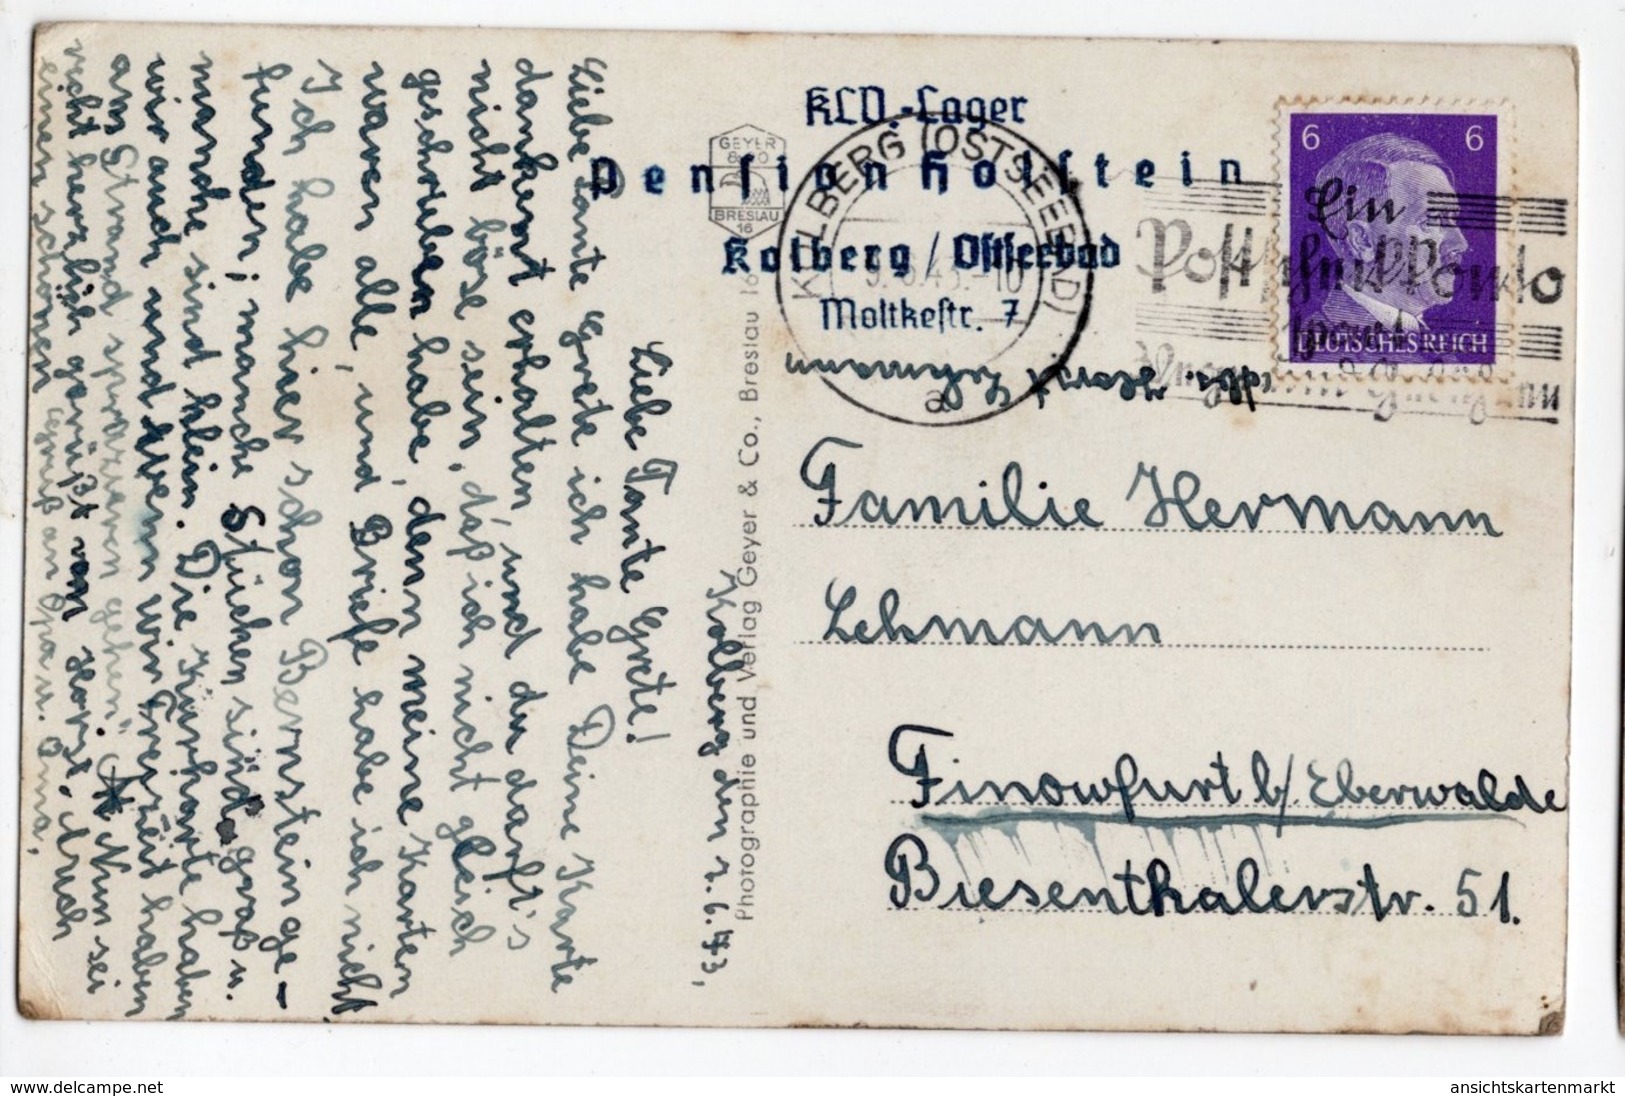 Kolberg den 2.6.43,
Liebe Tante Grete!
Liebe Tante Grete ich habe Deine Karte
dankent erhalten, und du darft's
nicht böse sein, daß ich nicht gleich
geschrieben habe, den meine Karten
waren alle, und Briefe habe ich nicht.
Ich habe hier schon Bernstein ge-
funden; manche Stücken sind groß u.
manche sind klein. Die Kurkarte haben
wir auch und wenn wir Freizeit haben
am Strand spazieren gehen. Nun sei
recht herzlich gerüßt von Horst, auch
einen schönen Gruß an Opa u. Oma,
GEYER
& CO
BRESLAU
16
Photographie und Verlag Geyer & Co., Breslau 16
KLV.-Lager
Pension Holstein
Kolberg / Ostseebad
Moltkestr. 7
KOLBERG (OSTSEEBAD)
.6.43.-10
a
Abs. Horst Lehmann
6 6
DEUTSCHES REICH
Ein
Postscheckkonto
Familie Hermann
Lehmann
Finowfurt b/ Eberwalde
Biesenthalerstr. 51.
www.delcampe.net
ansichtskartenmarkt